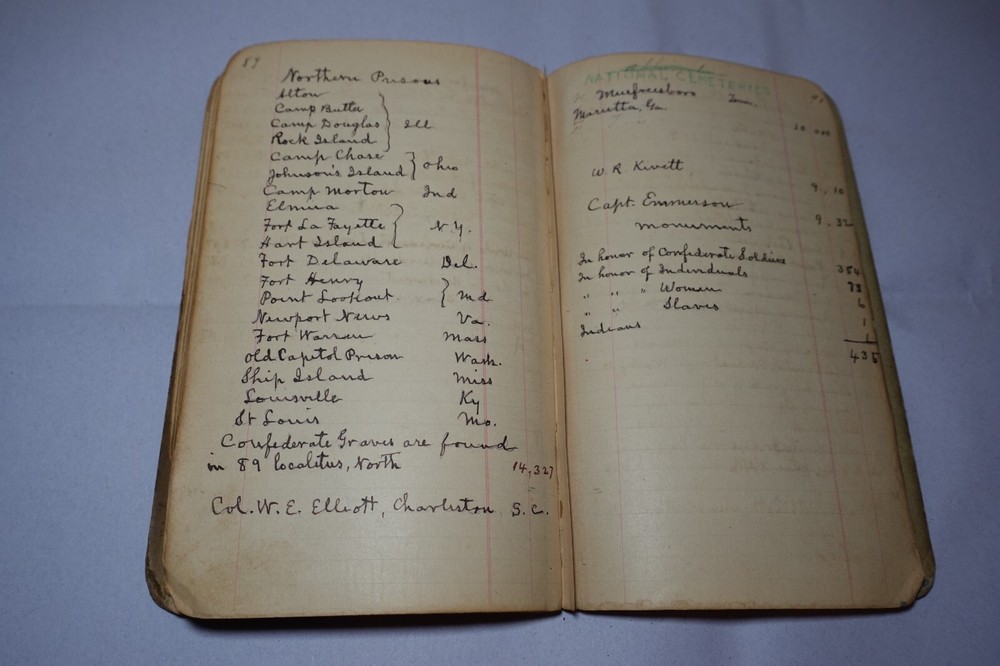 89
Northern Prisons
Alton
Camp Butler
Camp Douglas } Ill
Rock Island
Camp Chase
Johnson's Island } Ohio
Camp Morton Ind
Elmira
Fort La Fayette } N.Y.
Hart Island
Fort Delaware Del.
Fort Henry
Point Lookout } Md
Newport News Va.
Fort Warren Mass
Old Capitol Prison Wash.
Ship Island Miss
Louisville Ky
St Louis Mo.
Confederate Graves are found
in 89 localities, North 14,327
Col. W. E. Elliott, Charleston S.C.
NATIONAL CEMETERIES
Murfreesboro Tenn.
Marietta, Ga
10 000
W. R. Kivett
9, 10
Capt. Emmerson
monuments 9. 32
In honor of Confederate Soldiers 354
In honor of Individuals 73
" " " Women 6
" " Slaves 1
Indians 1
435